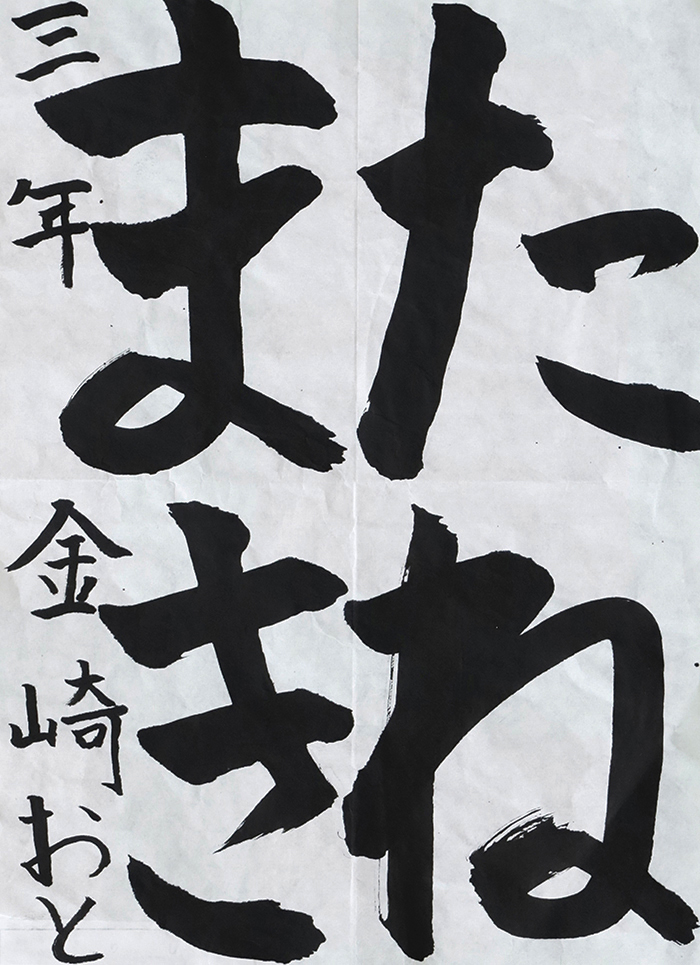 たね
まき
三年 金崎おと